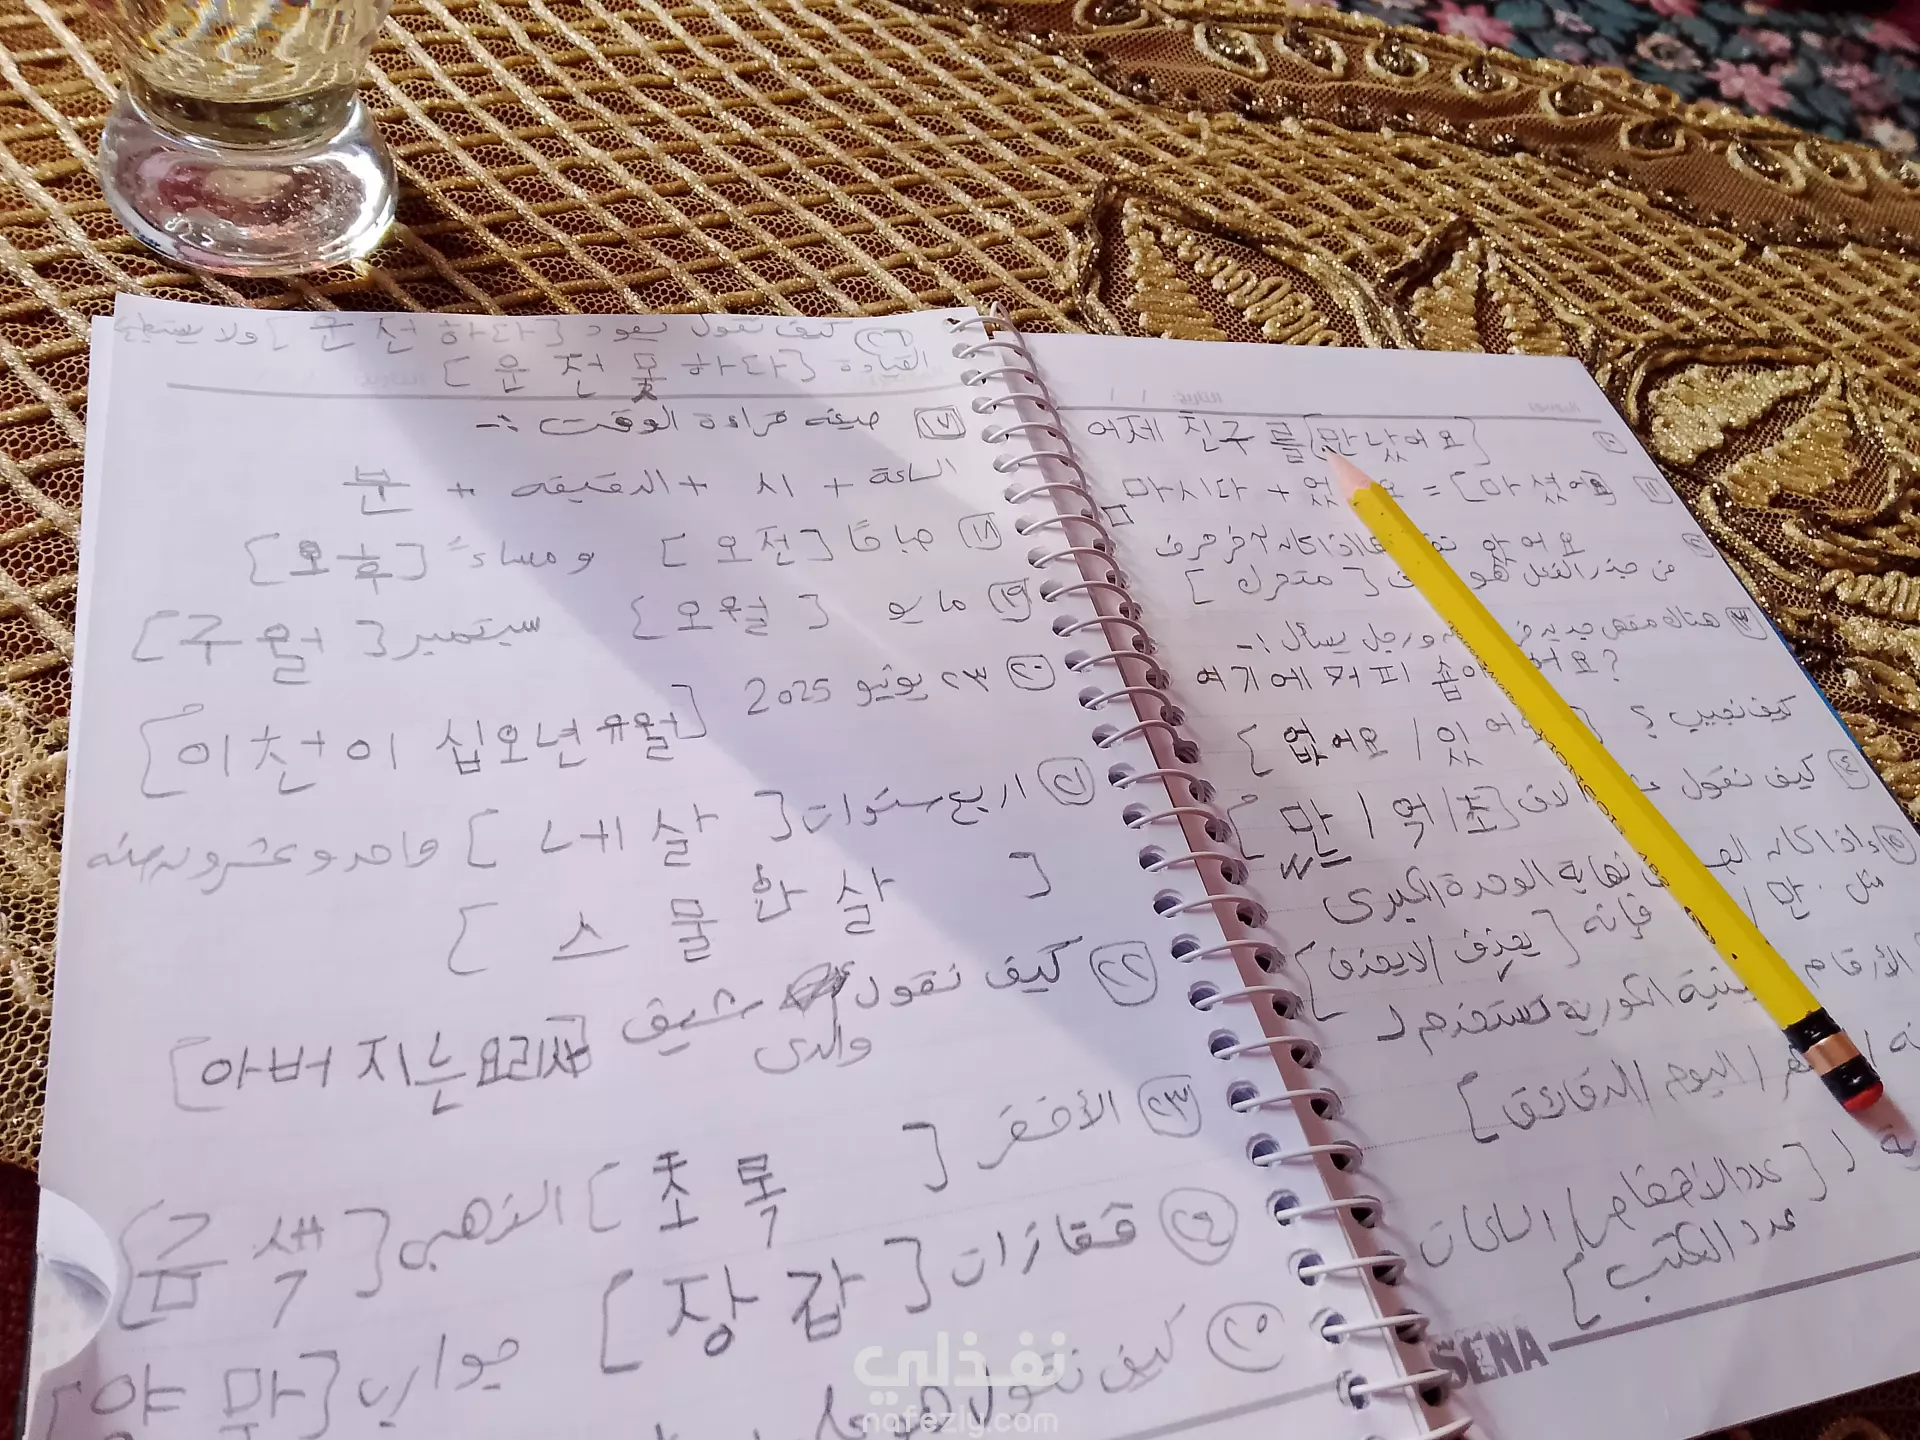 (١٦) كيف نقول يقود [운전하다] ولا يستطيع
القيادة [운전못하다]
(١٧) صيغة قراءة الوقت :-
الساعة + 시 + الدقيقه + 분
(١٨) صباحًا [오전] و مساءً [오후]
(١٩) مايو [오월] سبتمبر [구월]
(٢٠) ٢٣ يونيو 2025 [이천이십오년 유월
(٢١) اربع سنوات [네살] واحد وعشرون سنه
[스물한살]
(٢٢) كيف نقول شيق
والدى
[아버지는요리사]
(٢٣) الأخضر [초록] الذهبى [금색]
(٢٤) قفازات [장갑] جوارب [양말]
(٢٥) كيف نقول
어제 친구를[만났어요]
(١١) 마시다 + = [마셨어요]
아어요 اذا كان آخر حرف
من جذر الفعل هو [متحرك]
(١٣) هناك مقهى جديد ورجل يسأل :-
여기에커피숍이 어요?
كيف نجيب ؟ [없어요 / 있어요]
(١٤) كيف نقول [만 / 억 / 조]
(١٥) واذا كان نهاية الوحدة الكبرى
مثل . 만 / فإنه [يحذف / لا يحذف]
الأرقام الكورية تستخدم لـ
/ اليوم / الدقائق]
لـ [عدد الأشخاص / الساعات
عدد الكتب]
SENA
نفذلي
nafezly.com